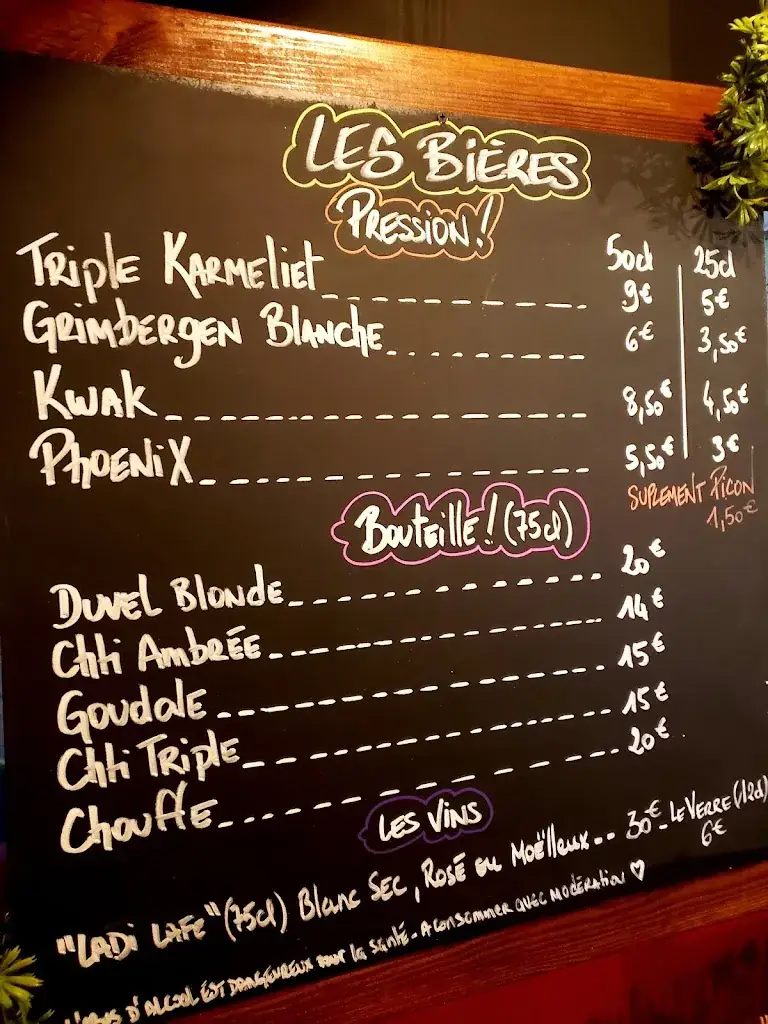 LES BIÈRES
PRESSION!
50cl 25cl
TRIPLE KARMELIET 9€ 5€
GRIMBERGEN BLANCHE 6€ 3,50€
KWAK 8,50€ 4,50€
PHOENIX 5,50€ 3€
SUPLEMENT PICON
1,50€
Bouteille! (75cl)
DUVEL BLONDE 20€
Chti AMBRÉE 14€
GOUDALE 15€
Chti TRIPLE 15€
Chouffe 20€
LES VINS
"LADI LAFE" (75cl) Blanc SEC, ROSÉ ou MOËlleux 30€ - LE VERRE (12cl)
6€
L'ABUS D'ALCOOL EST DANGEUREUX POUR la santé - A consommer avec modération ♡